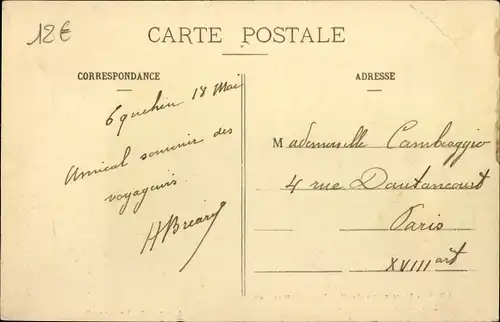 12€
CARTE POSTALE
CORRESPONDANCE
ADRESSE
18 Mai
Amical souvenir des
voyageurs
Mademoiselle Cambiaggio
4 rue Dautancourt
Paris
XVIII art